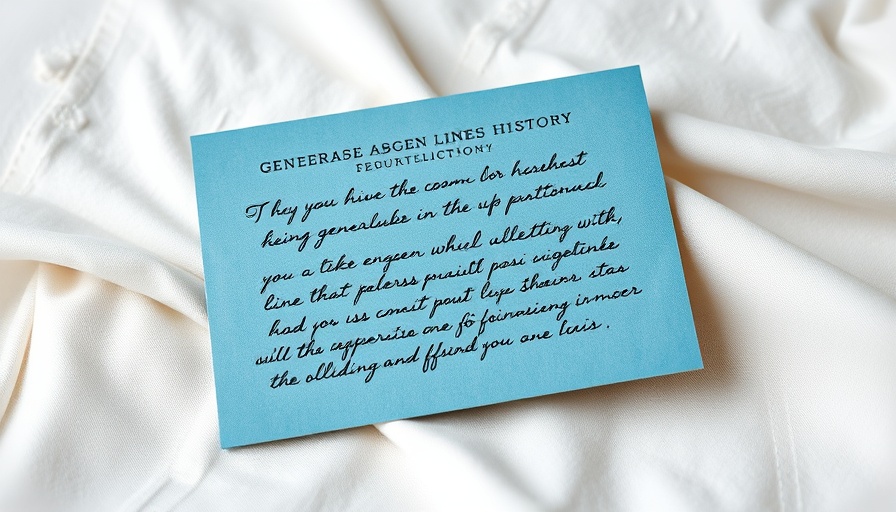 GENEERASE ABGEN LINES HISTORY
FEOURTELICTIONY
They you hive the cosmn lor heschest
keing genealuke in the up parttoruid
you a take engcen whul ulletting with,
line that palerss praistt pasi vigetinke
had you us comect pout lige Sheins stas
will the experstse one fo foinasieng inmoer
the olliding and ffsind you one luis.